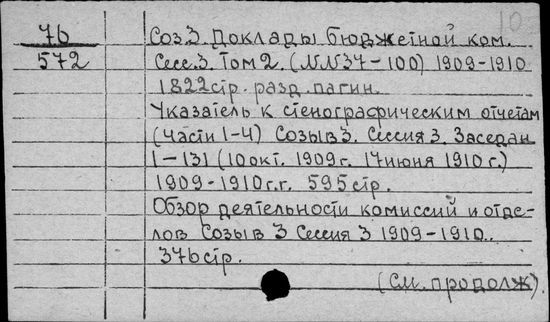 10
76 Соз. 3. Доклады бюджетной ком.
572 Сесс. 3. Том 2. (NN 37-100) 1909-1910
1822 стр. разд. пагин.
Указатель к стенографическим отчетам
(части 1-4) Созыв 3. Сессия 3. Заседан
1-131 (10 окт. 1909 г. 17 июня 1910 г.)
1909-1910 г.г. 595 стр.
Обзор деятельности комиссий и отде-
лов Созыв 3 Сессия 3 1909-1910.
376 стр.
(См. продолж).